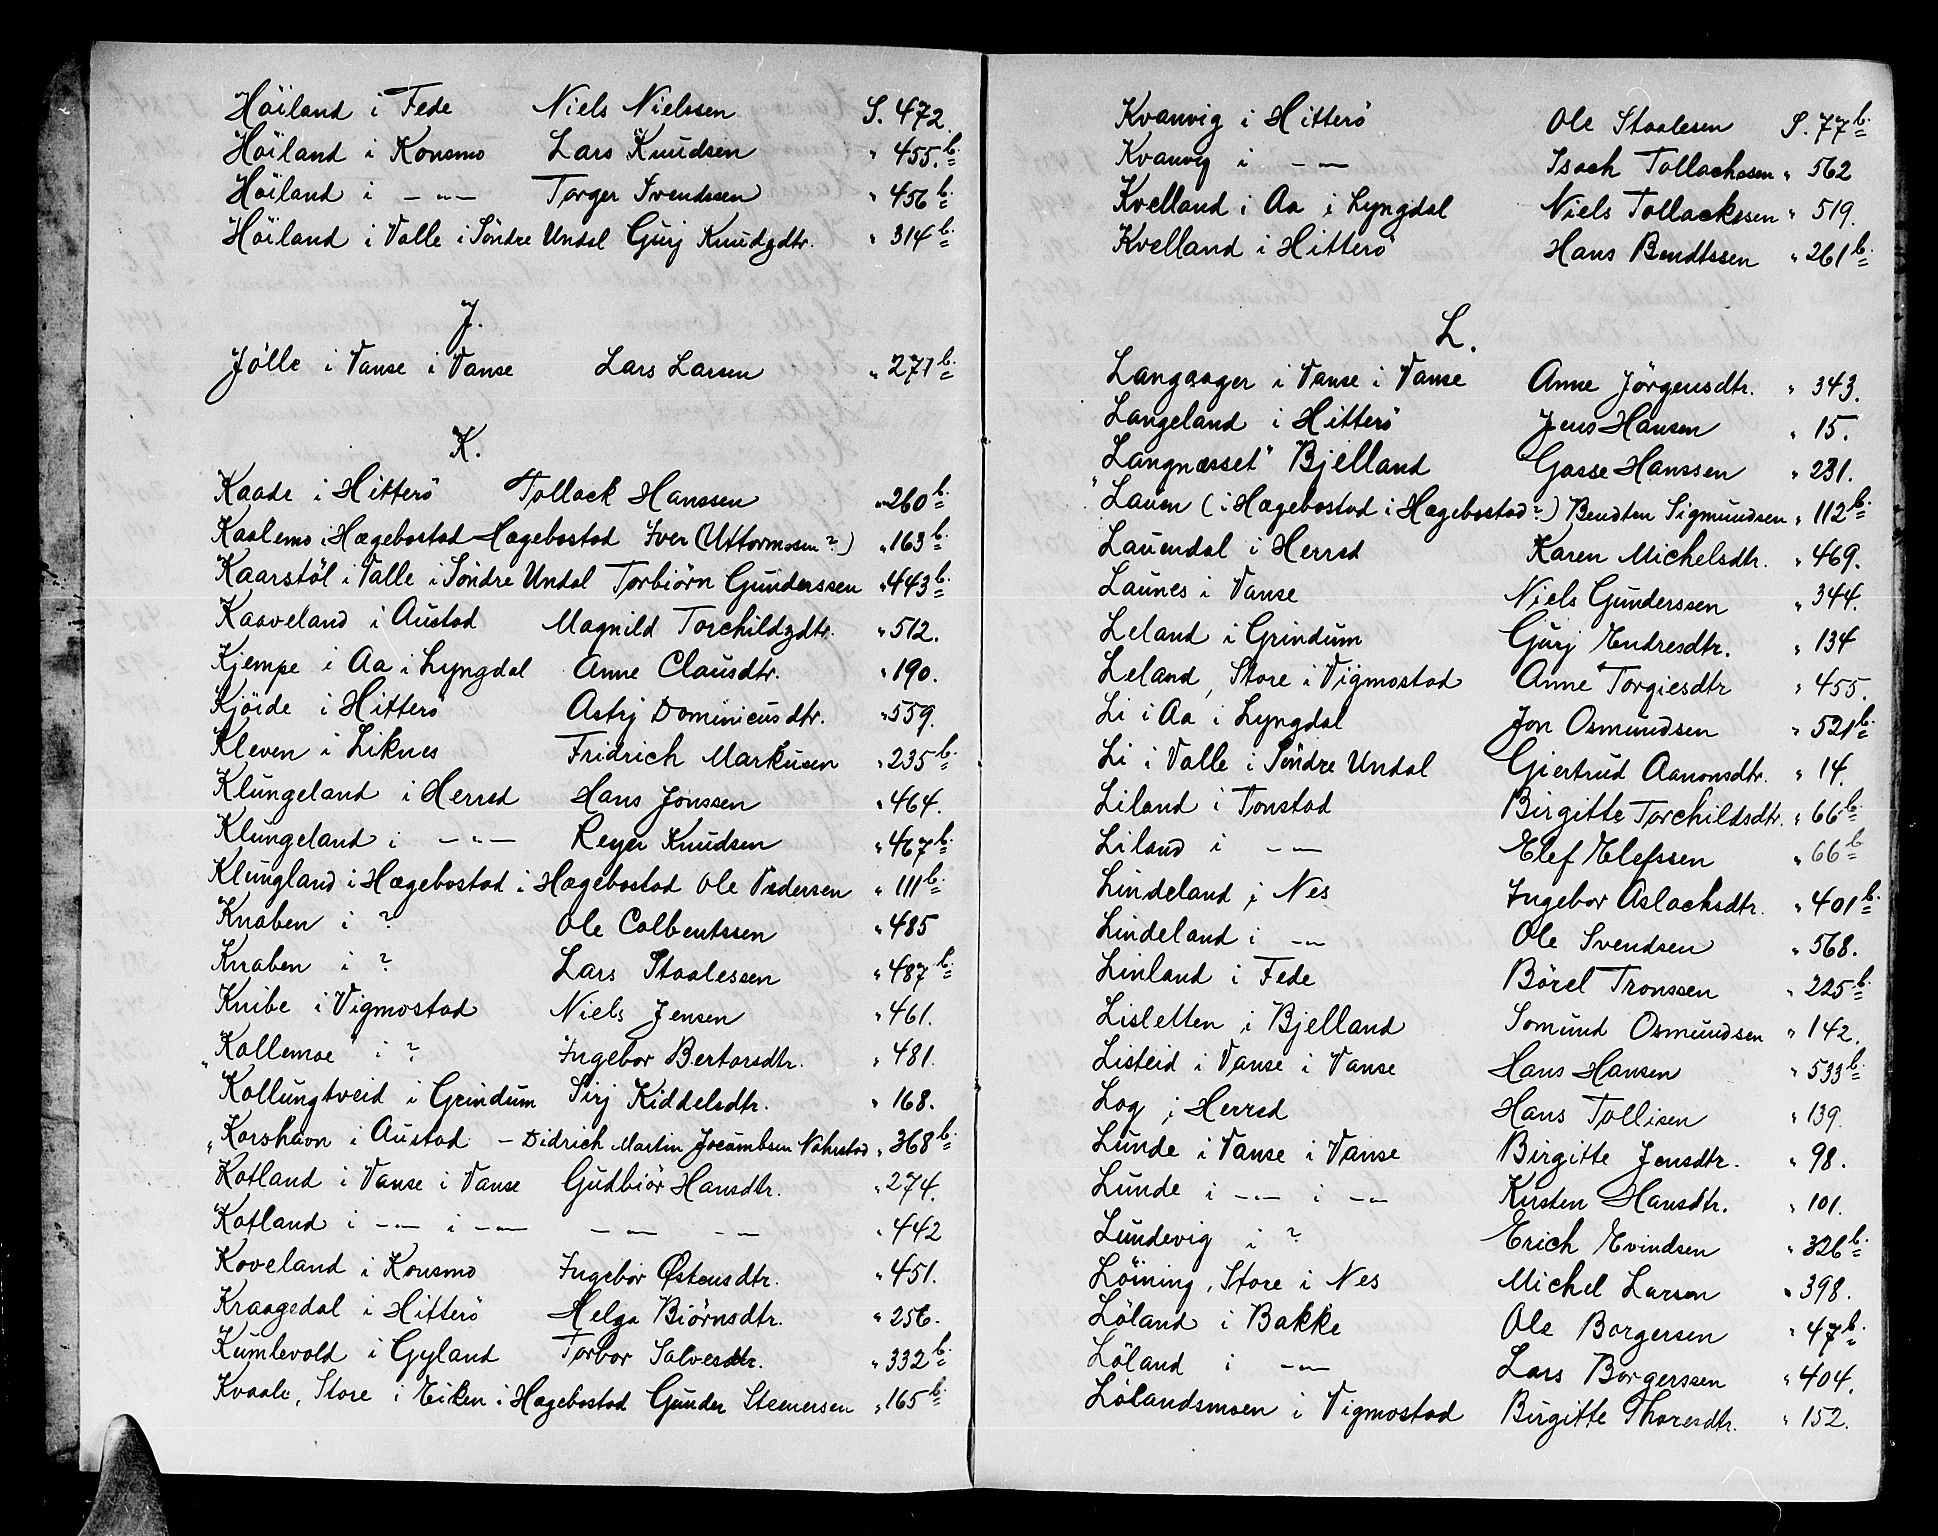 Höiland i Fede Niels Nielssen S. 472.
Höiland i Konsmo Lars Knudsen " 455.b.
Höiland i — " — Torger Svendssen " 456 b.
Höiland i Valle i Söndre Undal Gurj Knudzdtr. " 314 b.
J.
Jölle i Vanse i Vanse Lars Larsen " 271 b.
K.
Kaade i Hitterö Tollack Hanssen " 260 b.
Kaalemo i Hægebostad Hægebostad Iver (Uttormosen?) " 163 b.
Kaarstöl i Valle i Söndre Undal Torbiörn Gunderssen " 443 b.
Kaaveland i Austad Magnild Torchildzdtr. " 512.
Kjempe i Aa i Lyngdal Anne Clausdtr. " 190.
Kjöide i Hitterö Astrj Dominicusdtr. " 559.
Kleven i Liknes Fridrich Markusen " 235 b.
Klungeland i Herred Hans Jonssen " 464.
Klungeland i — " — Reyer Knudsen " 467 b.
Klungland i Hægebostad i Hægebostad Ole Pedersen " 111 b.
Knaben i ? Ole Colbentssen " 485
Knaben i ? Lars Staalessen " 487 b.
Knibe i Vigmostad Niels Jensen " 461.
"Kollemoe" i ? Ingebor Bertorsdtr. " 481.
Kollungtveid i Grindum Sirj Kiddelsdtr. " 168.
"Korshavn i Austad — Didrich Martin Jocumbsen Nahrstad " 368 b.
Kotland i Vanse i Vanse Gudbiör Hansdtr. " 274.
Kotland i — " — i — " — — " — — " — " 442
Koveland i Konsmo Ingebor Østensdtr. " 451.
Kraagedal i Hitterö Helga Biörnsdtr. " 256.
Kumlevold i Gyland Torbor Salvesdtr. " 332 b.
Kvaale, Store i Eiken i Hægebostad Gunder Steenersen " 165 b.
Kvanvig i Hitterö Ole Staalesen S. 77 b.
Kvanvig i — " — Isach Tollachssen " 562
Kvelland i Aa i Lyngdal Niels Tollackssen " 519.
Kvelland i Hitterö Hans Bendtssen " 261 b.
L.
Langaager i Vanse i Vanse Anne Jörgensdtr. " 343.
Langeland i Hitterö Jens Hansen " 15.
"Langnæsset" Bjelland Gosse Hanssen " 231.
"Lauen (i Hægebostad i Hægebostad?) Bendten Sigmundsen " 112 b.
Lauendal i Herred Karen Michelsdtr. " 469.
Launes i Vanse Niels Gunderssen " 344.
Leland i Grindum Gurj Endresdtr. " 134
Leland, Store i Vigmostad Anne Torgiesdtr " 455.
Li i Aa i Lyngdal Jon Osmundsen " 521 b.
Li i Valle i Söndre Undal Giertrud Aanonsdtr. " 14.
Liland i Tonstad Birgitte Torchildsdtr. " 66 b.
Liland i — " — Elef Elefssen " 66 b
Lindeland i Nes Ingebor Aslachsdtr. " 401 b.
Lindeland i — " — Ole Svendsen " 568.
Linland i Fede Börel Tronssen " 225 b.
Lisletten i Bjelland Somund Osmundsen " 142.
Listeid i Vanse i Vanse Hans Hansen " 533 b.
Log i Herred Hans Tollisen " 139.
Lunde i Vanse i Vanse Birgitte Jensdtr. " 98.
Lunde i — " — i — " — Kirsten Hansdtr. " 101.
Lundevig i ? Erich Evindsen " 326 b.
Löining, Store i Nes Michel Larsen " 398.
Löland i Bakke Ole Borgersen " 47 b.
Löland i — " — Lars Borgerssen " 404.
Lölandsmoen i Vigmostad Birgitte Thoresdtr. " 152.